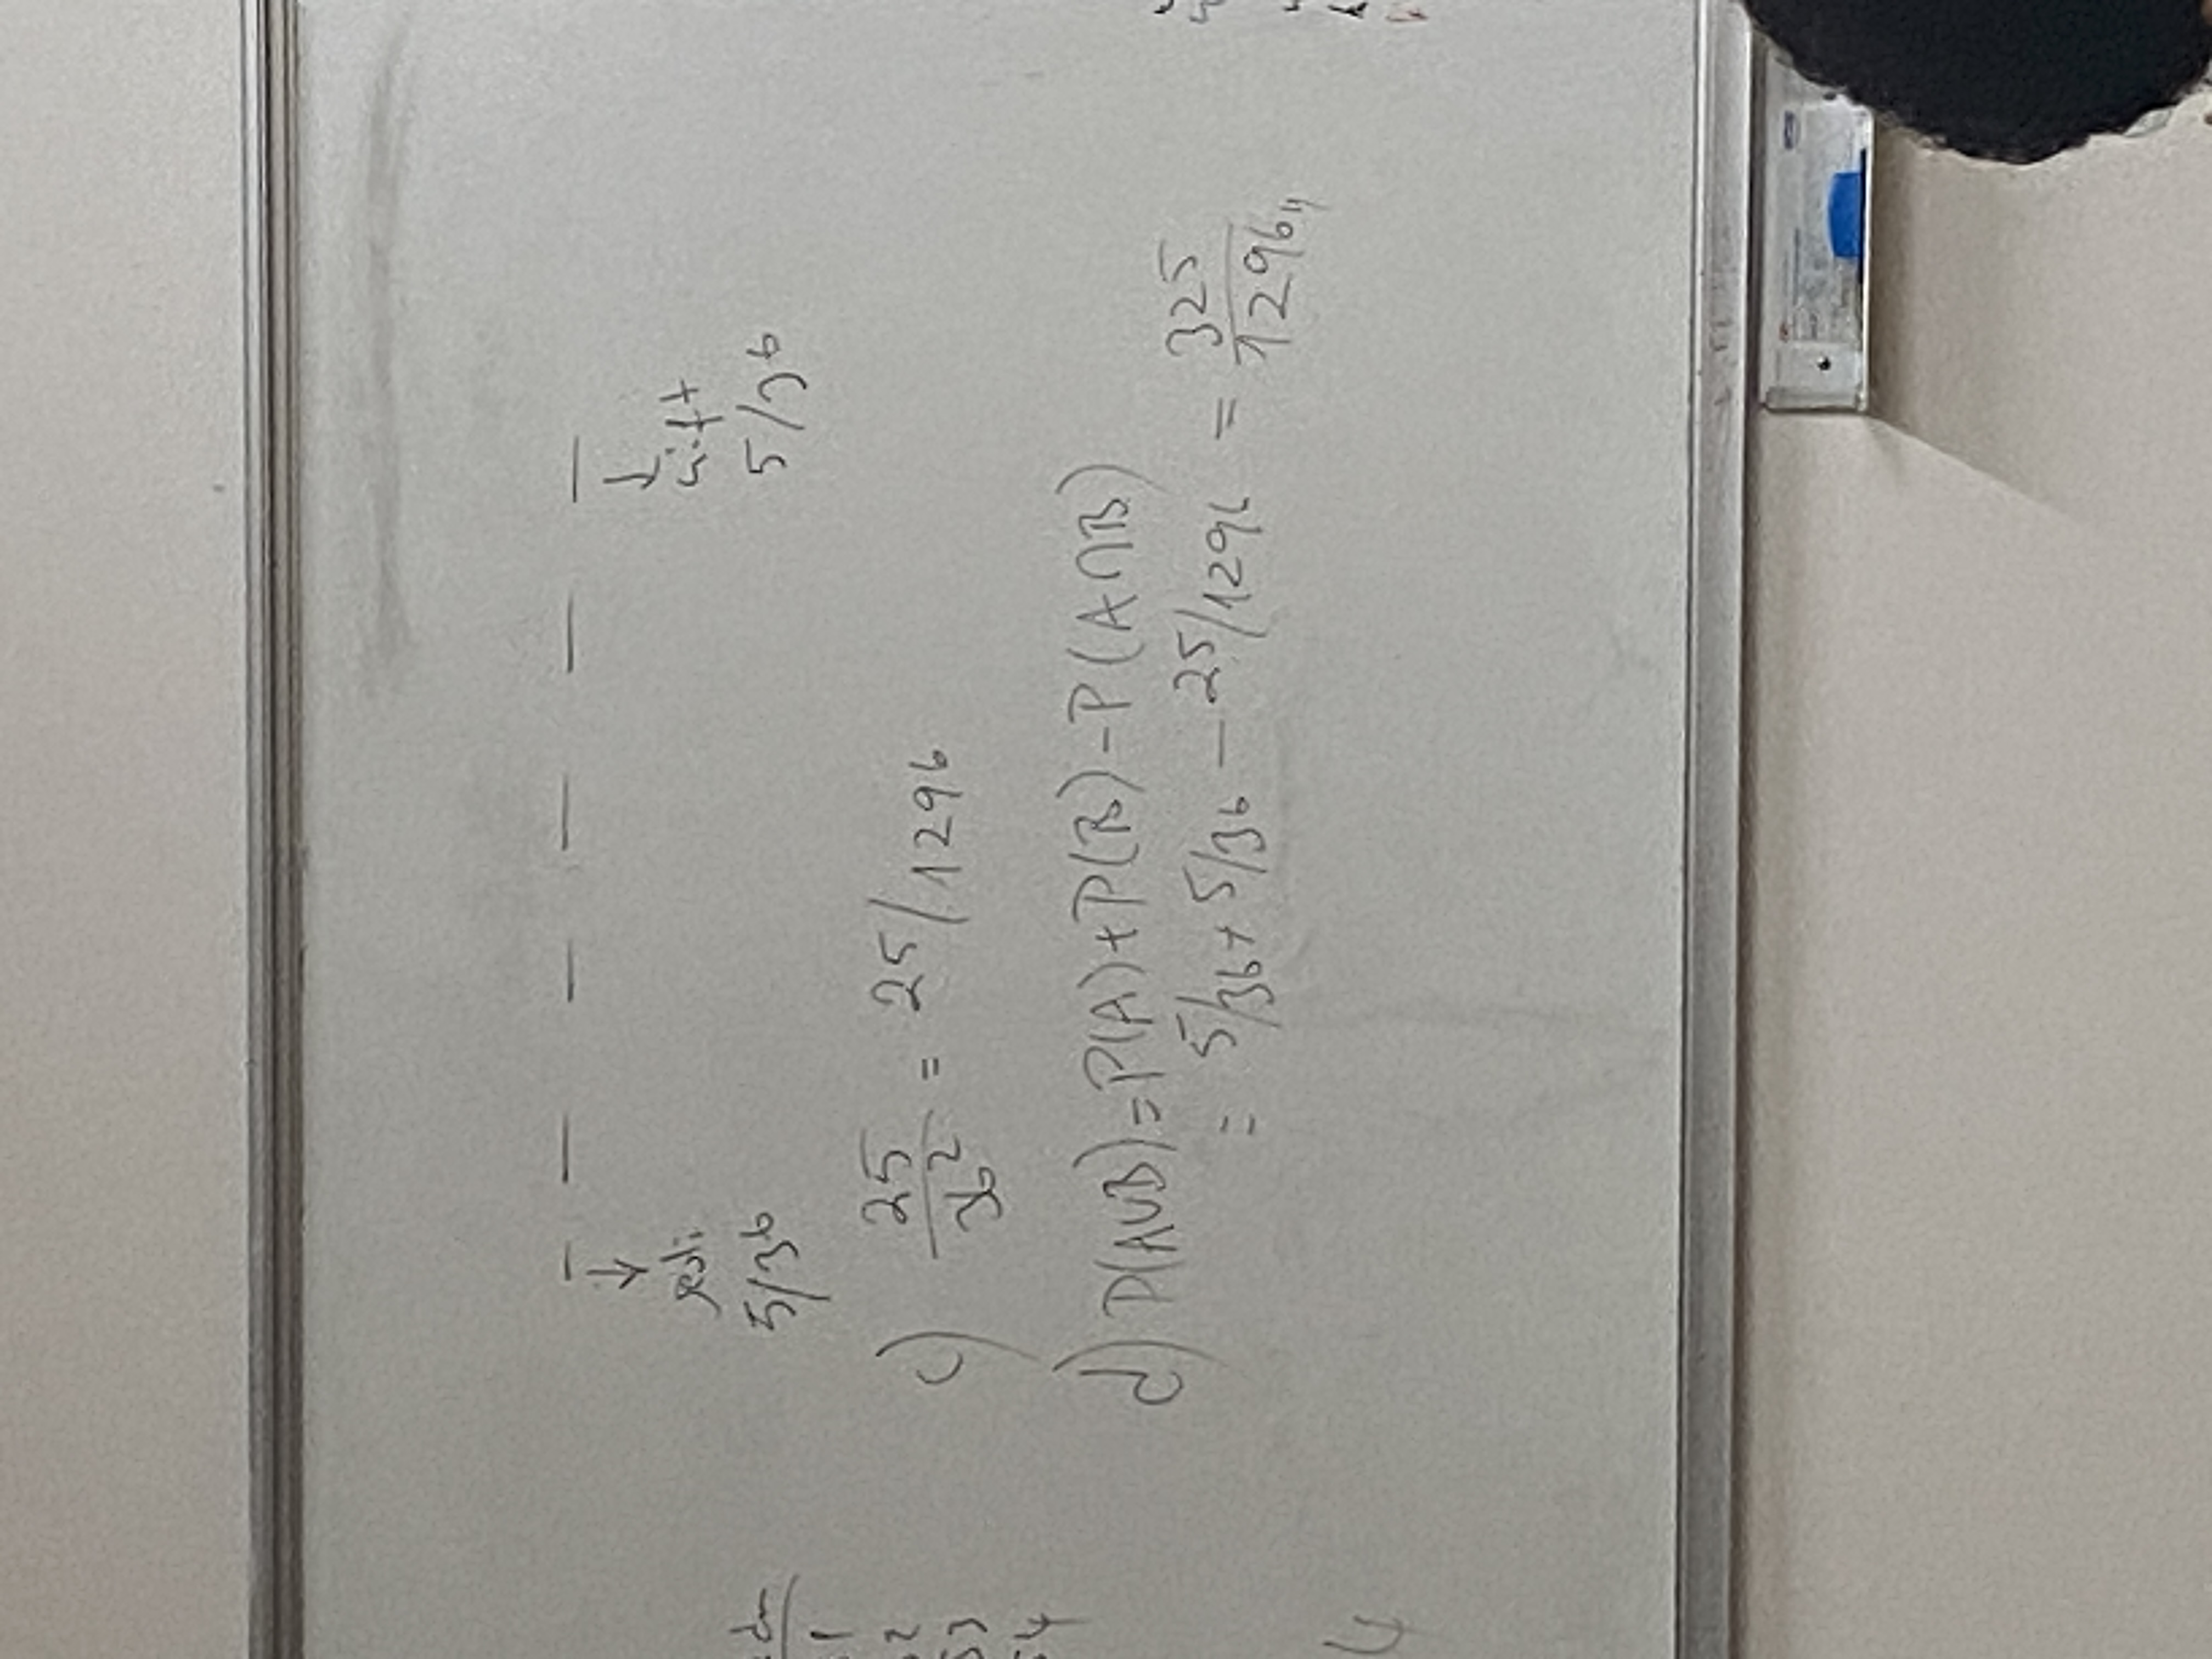 sesli
çift
5/36
5/36
c) 25/36² = 25/1296
d) P(A∪B) = P(A) + P(B) - P(A∩B)
= 5/36 + 5/36 - 25/1296 = 325/1296